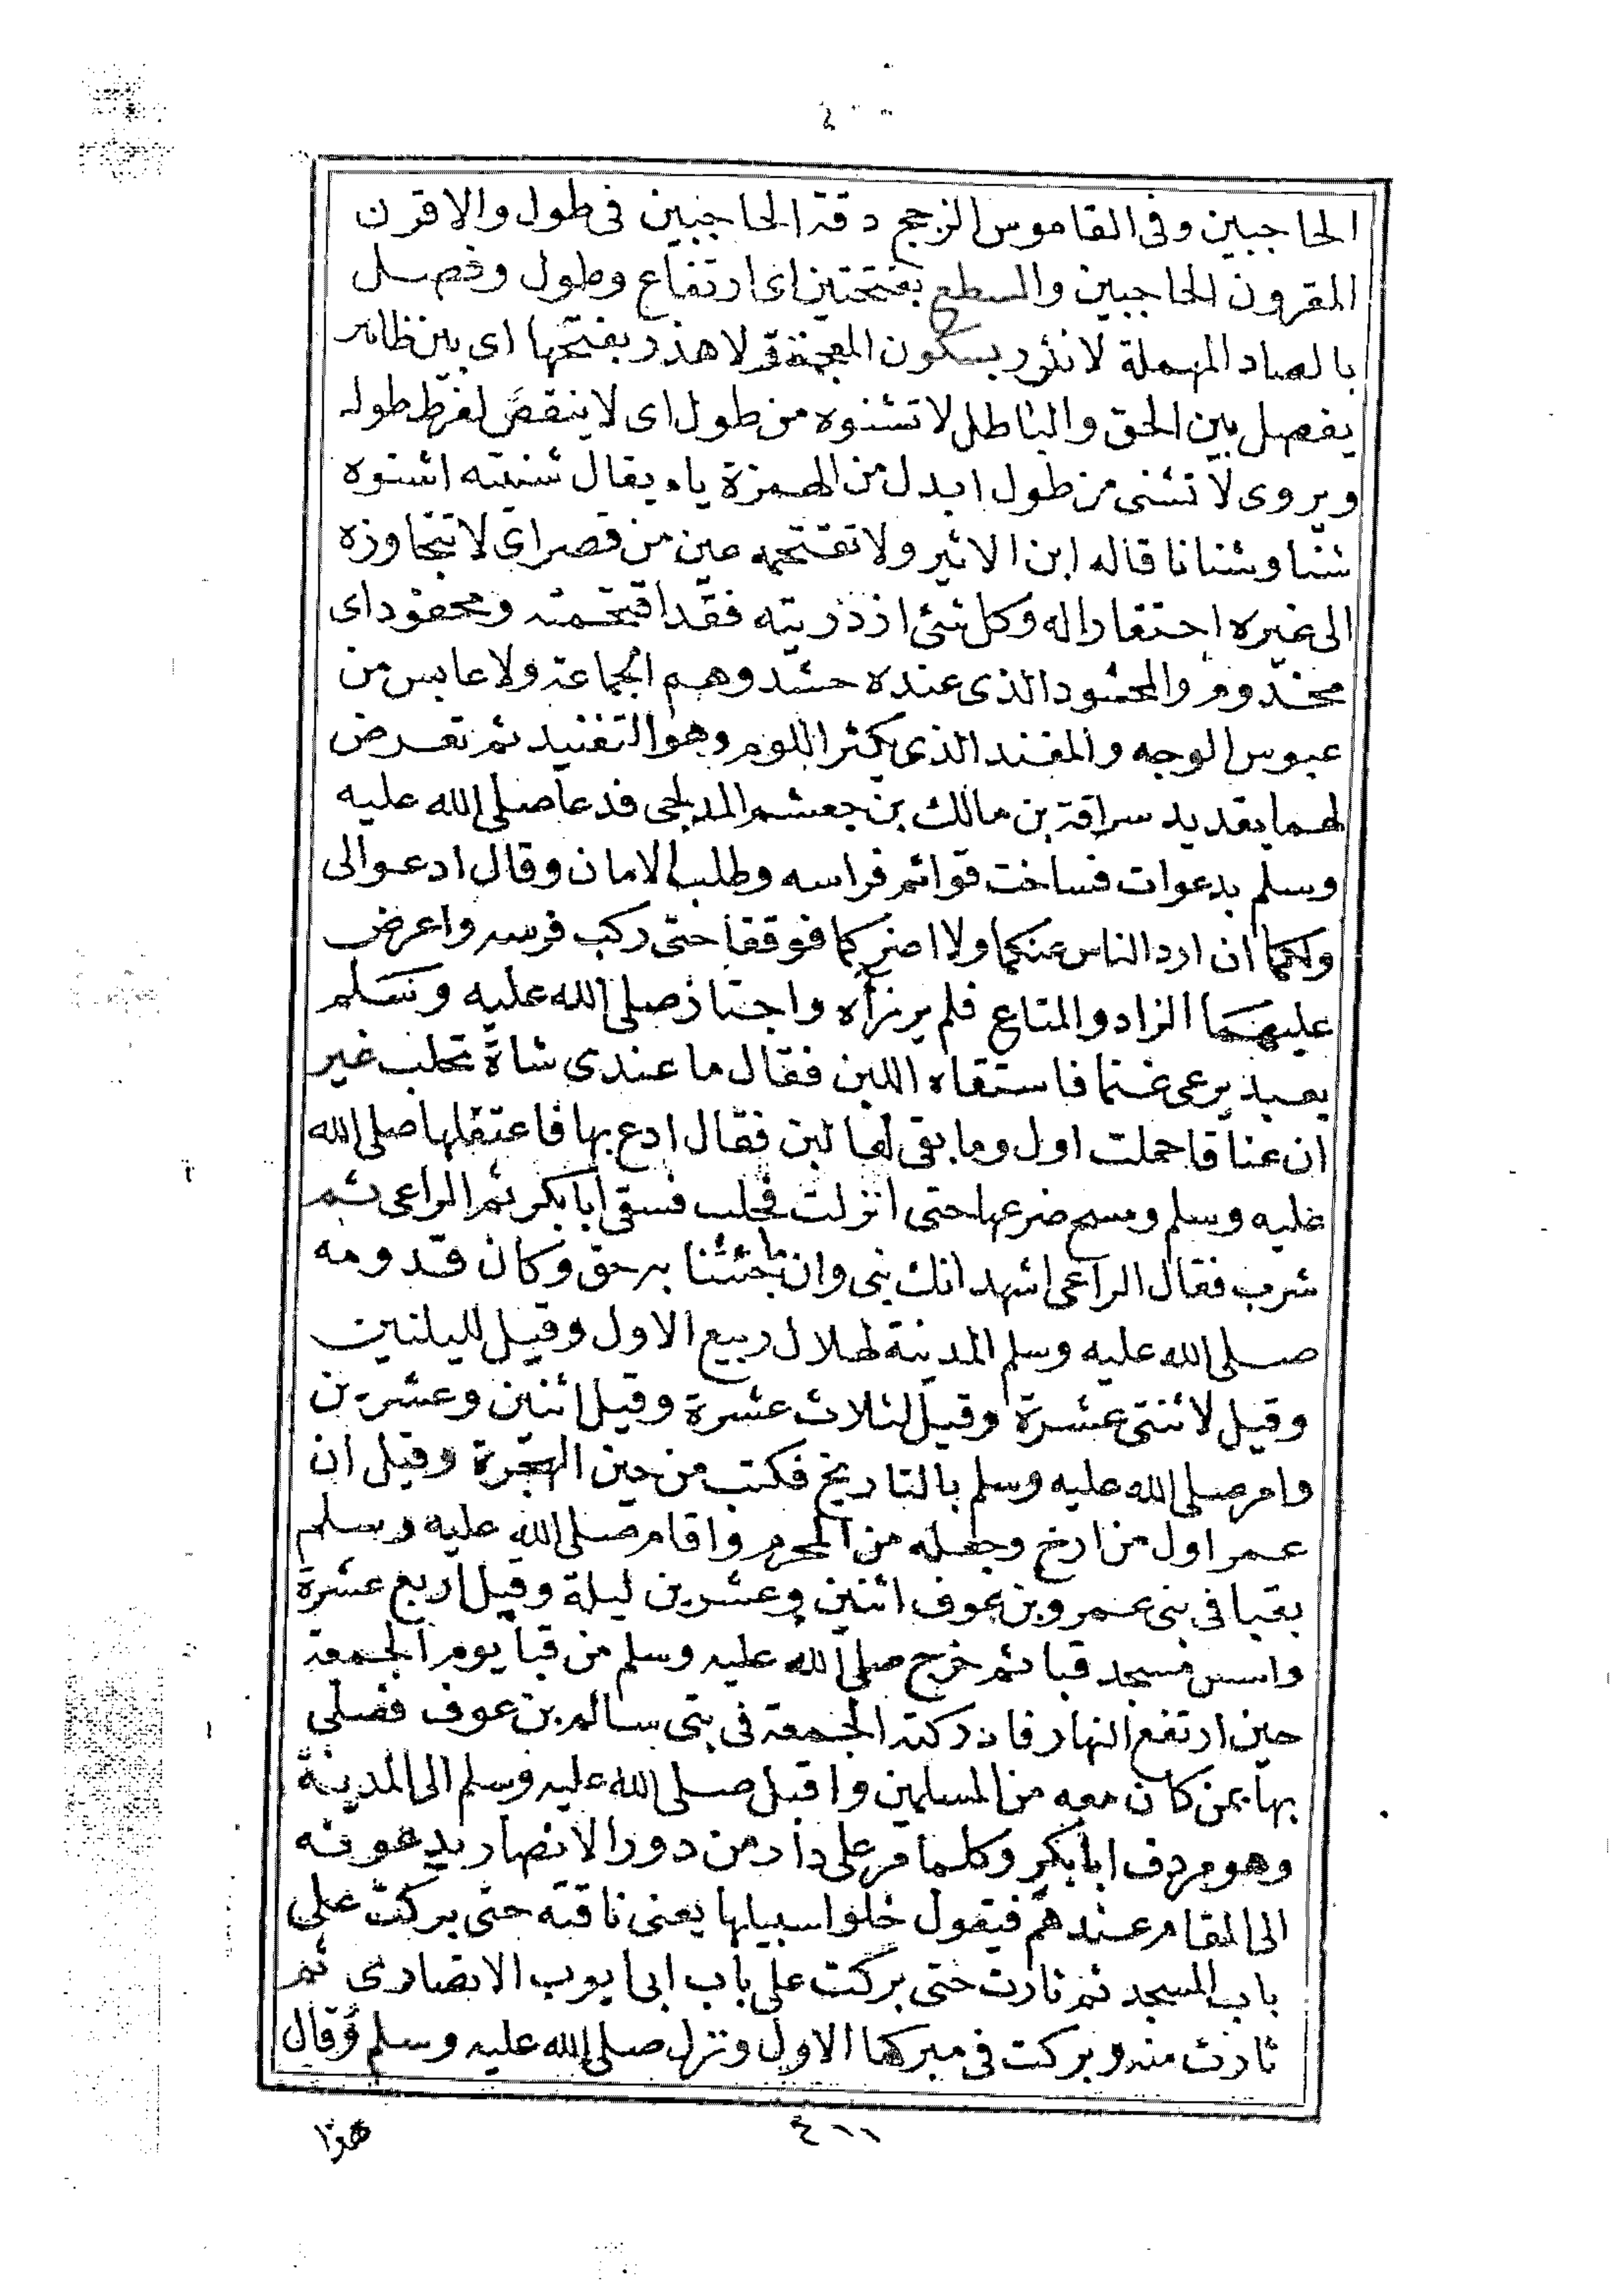 الحاجبين وفى القاموس الزجج دقة الحاجبين فى طول والاقرن
المقرون الحاجبين والسطع بفتحتين اى ارتفاع وطول وفصل
بالصاد المهملة لا نزر بسكون المعجمة ولا هذر بفتحها اى بين ظاهر
يفصل بين الحق والباطل لا تشنوه من طول اى لا ينقص لفرط طوله
ويروى لا تشنى من طول ابدل من الهمزة ياء يقال شنيته اشنوه
شنا وشنانا قاله ابن الاثير ولا تقتحمه عين من قصر اى لا تتجاوزه
الى غيره احتقارا له وكل شئ ازذريته فقد اقتحمته ومحفود اى
مخدوم والمحشود الذى عنده حشد وهم الجماعة ولا عابس من
عبوس الوجه والمفند الذى يكثر اللوم وهو التفنيد ثم تعرض
لهما بقديد سراقة بن مالك بن جعشم المدلجى فدعا صلى الله عليه
وسلم بدعوات فساخت قوائم فراسه وطلب الامان وقال ادعوا لى
ولكما ان ارد الناس عنكما ولا اضركما فوقفا حتى ركب فرسه واعرض
عليهما الزاد والمتاع فلم يرزأه واجتاز صلى الله عليه وسلم
بعبد يرعى غنما فاستقاه اللبن فقال ما عندى شاة تحلب غير
ان عناقا حملت اول وما بقى لها لبن فقال ادع بها فاعتقلها صلى الله
عليه وسلم ومسح ضرعها حتى انزلت فحلب فسقى ابا بكر ثم الراعى ثم
شرب فقال الراعى اشهد انك نبى وان ما جئتنا به حق وكان قدومه
صلى الله عليه وسلم المدينة لهلال ربيع الاول وقيل لليلتين
وقيل لاثنتى عشرة وقيل لثلاث عشرة وقيل اثنين وعشرين
وامر صلى الله عليه وسلم بالتاريخ فكتب من حين الهجرة وقيل ان
عمر اول من ارخ وجعله من المحرم واقام صلى الله عليه وسلم
بقبا فى بنى عمرو بن عوف اثنين وعشرين ليلة وقيل اربع عشرة
واسس مسجد قبا ثم خرج صلى الله عليه وسلم من قبا يوم الجمعة
حين ارتفع النهار فادركته الجمعة فى بنى سالم بن عوف فصلى
بها بمن كان معه من المسلمين واقبل صلى الله عليه وسلم الى المدينة
وهو مردف ابا بكر وكلما مر على دار من دور الانصار يدعونه
الى المقام عندهم فيقول خلوا سبيلها يعنى ناقته حتى بركت على
باب المسجد ثم ثارت حتى بركت على باب ابى ايوب الانصارى ثم
ثارت منه وبركت فى مبركها الاول ونزل صلى الله عليه وسلم وقال
هذا